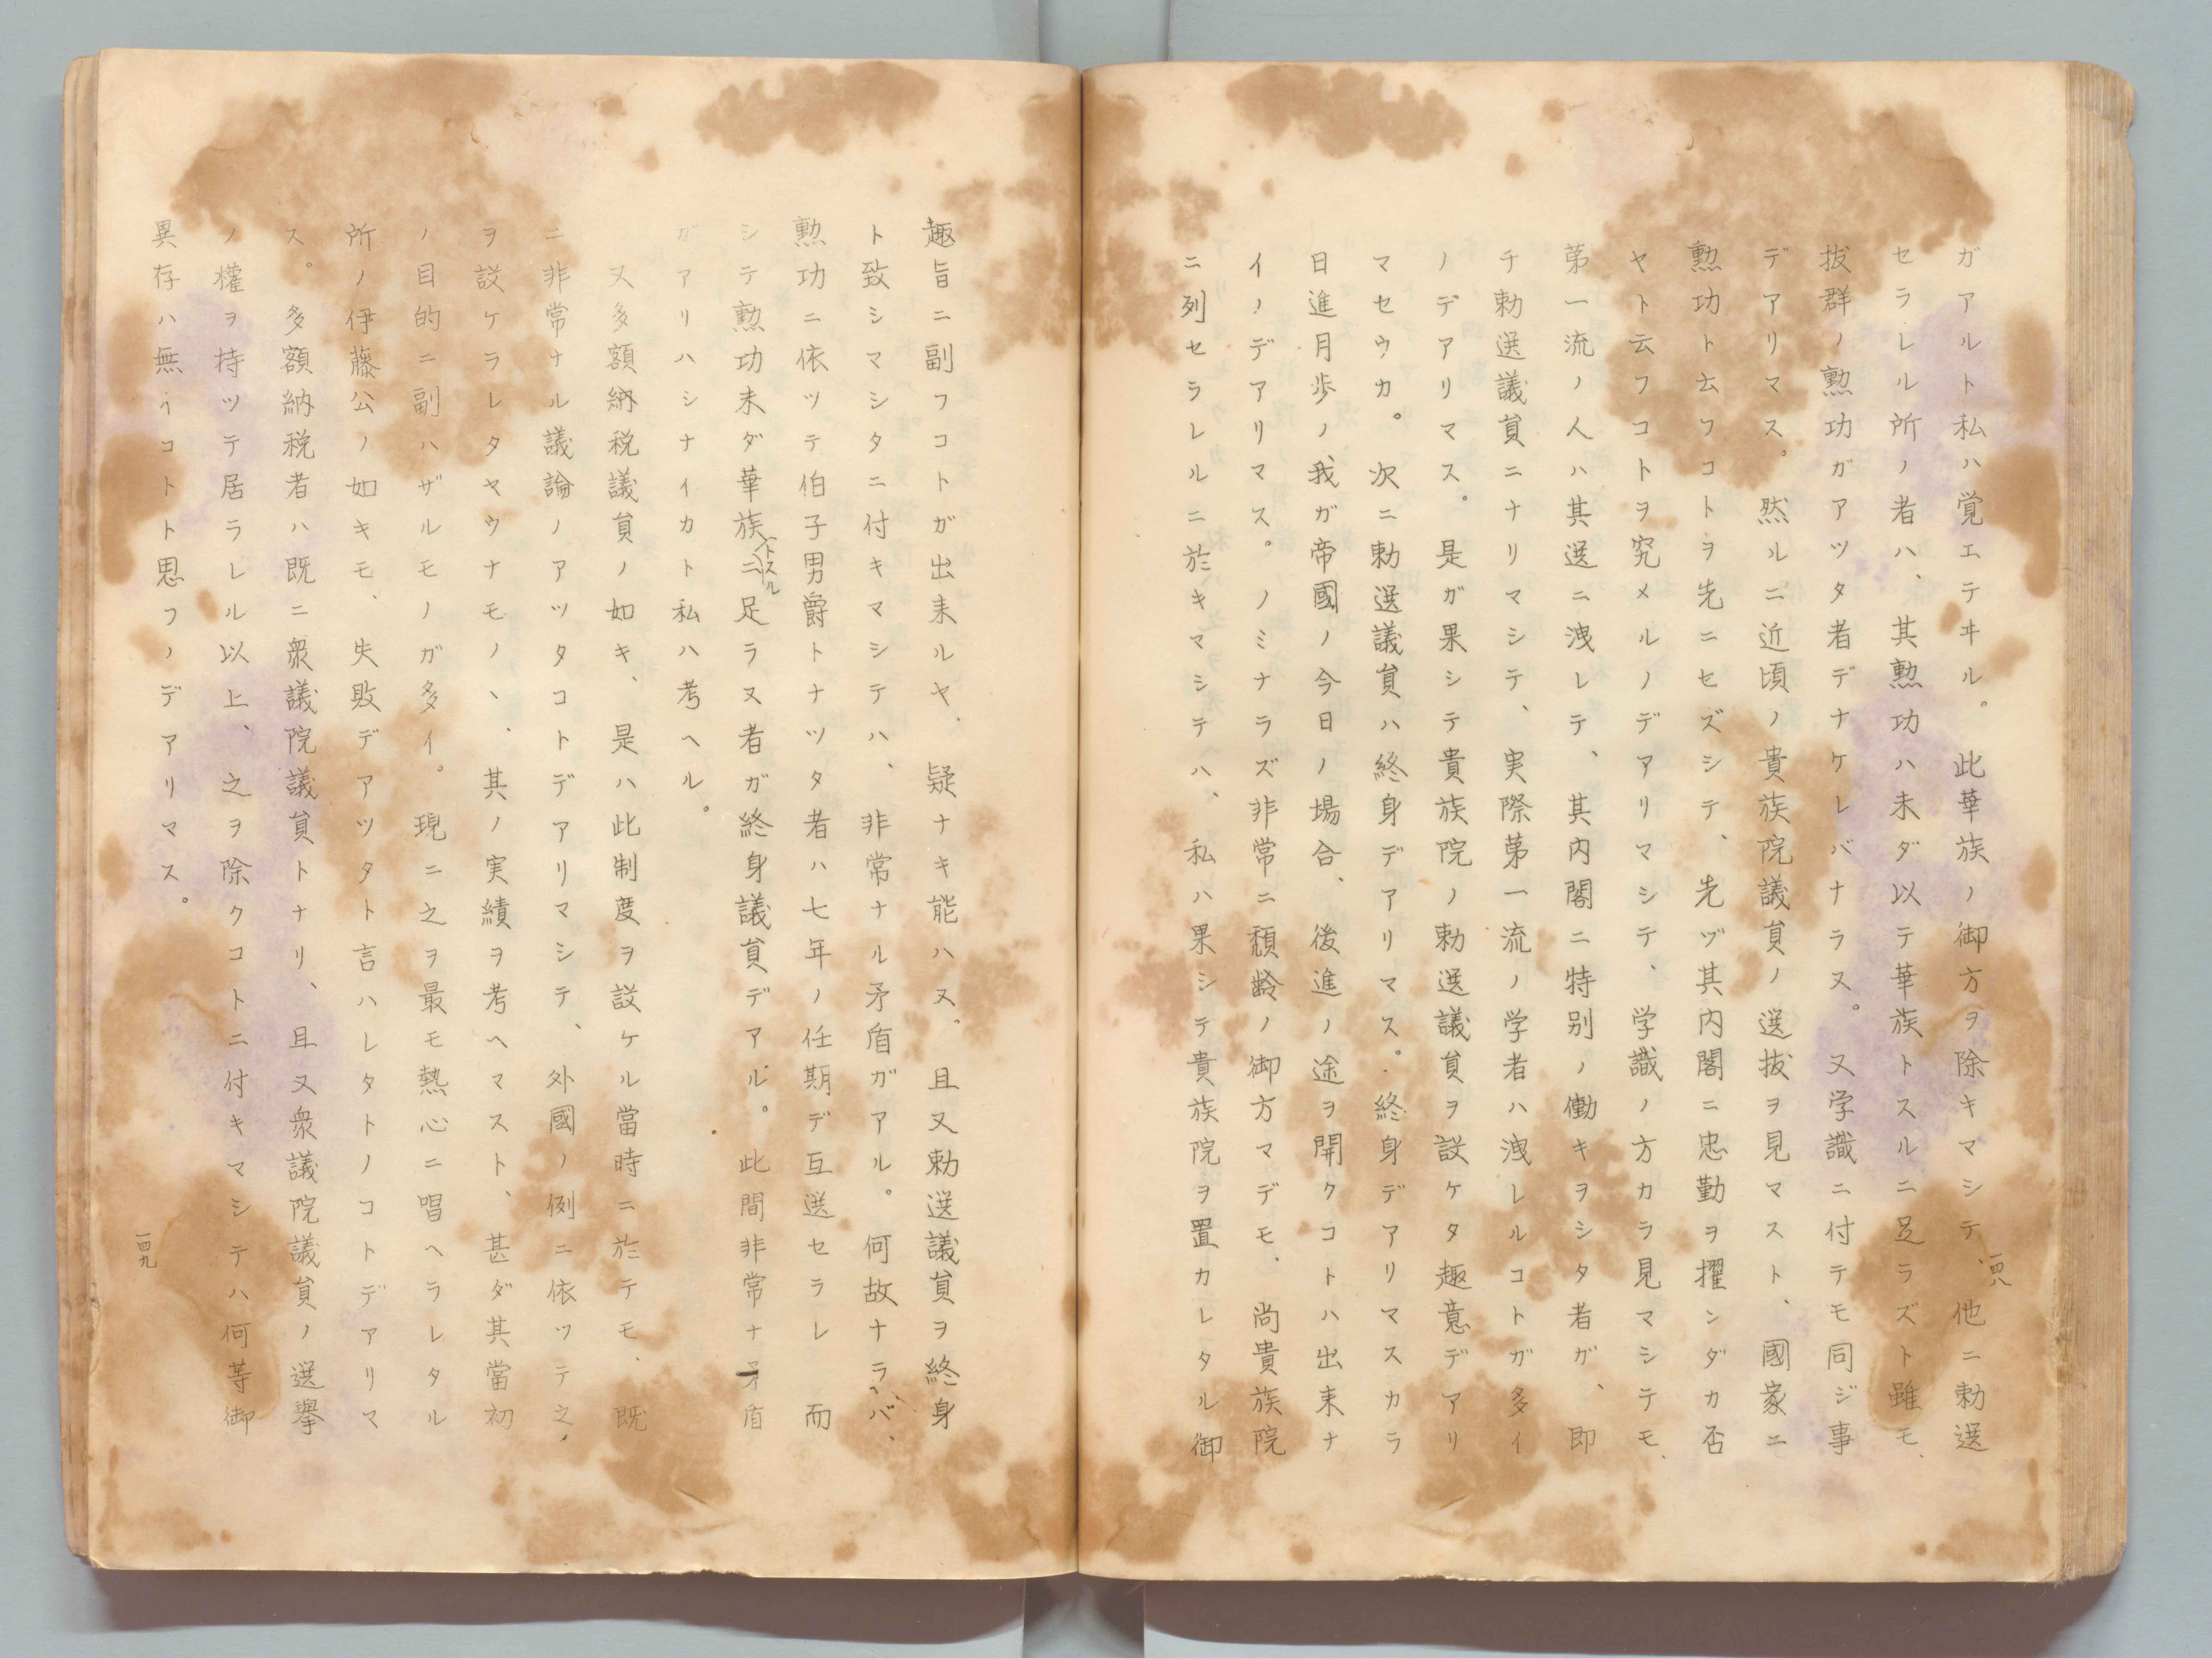 一四八
ガアルト私ハ覚エテヰル。此華族ノ御方ヲ除キマシテ、他ニ勅選
セラレル所ノ者ハ、其勲功ハ未ダ以テ華族トスルニ足ラズト雖モ、
抜群ノ勲功ガアツタ者デナケレバナラヌ。又学識ニ付テモ同ジ事
デアリマス。然ルニ近頃ノ貴族院議員ノ選抜ヲ見マスト、國家ニ
勲功ト云フコトヲ先ニセズシテ、先ヅ其内閣ニ忠勤ヲ擢ンダカ否
ヤト云フコトヲ究メルノデアリマシテ、学識ノ方カラ見マシテモ、
第一流ノ人ハ其選ニ洩レテ、其内閣ニ特別ノ働キヲシタ者ガ、即
チ勅選議員ニナリマシテ、実際第一流ノ学者ハ洩レルコトガ多イ
ノデアリマス。是ガ果シテ貴族院ノ勅選議員ヲ設ケタ趣意デアリ
マセウカ。次ニ勅選議員ハ終身デアリマス。終身デアリマスカラ
日進月歩ノ我ガ帝國ノ今日ノ場合、後進ノ途ヲ開クコトハ出来ナ
イノデアリマス。ノミナラズ非常ニ頽齢ノ御方マデモ、尚貴族院
ニ列セラレルニ於キマシテハ、私ハ果シテ貴族院ヲ置カレタル御
趣旨ニ副フコトガ出来ルヤ、疑ナキ能ハヌ。且又勅選議員ヲ終身
ト致シマシタニ付キマシテハ、非常ナル矛盾ガアル。何故ナラバ、
勲功ニ依ツテ伯子男爵トナツタ者ハ七年ノ任期デ互選セラレ而
シテ勲功未ダ華族トスルニ足ラヌ者ガ終身議員デアル。此間非常ナ矛盾
ガアリハシナイカト私ハ考ヘル。
又多額納税議員ノ如キ、是ハ此制度ヲ設ケル當時ニ於テモ、既
ニ非常ナル議論ノアツタコトデアリマシテ、外國ノ例ニ依ツテ之
ヲ設ケラレタヤウナモノヽ、其ノ実績ヲ考ヘマスト、甚ダ其當初
ノ目的ニ副ハザルモノガ多イ。現ニ之ヲ最モ熱心ニ唱ヘラレタル
所ノ伊藤公ノ如キモ、失敗デアツタト言ハレタトノコトデアリマ
ス。多額納税者ハ既ニ衆議院議員トナリ、且又衆議院議員ノ選挙
ノ權ヲ持ツテ居ラレル以上、之ヲ除クコトニ付キマシテハ何等御
異存ハ無イコトト思フノデアリマス。
一四九